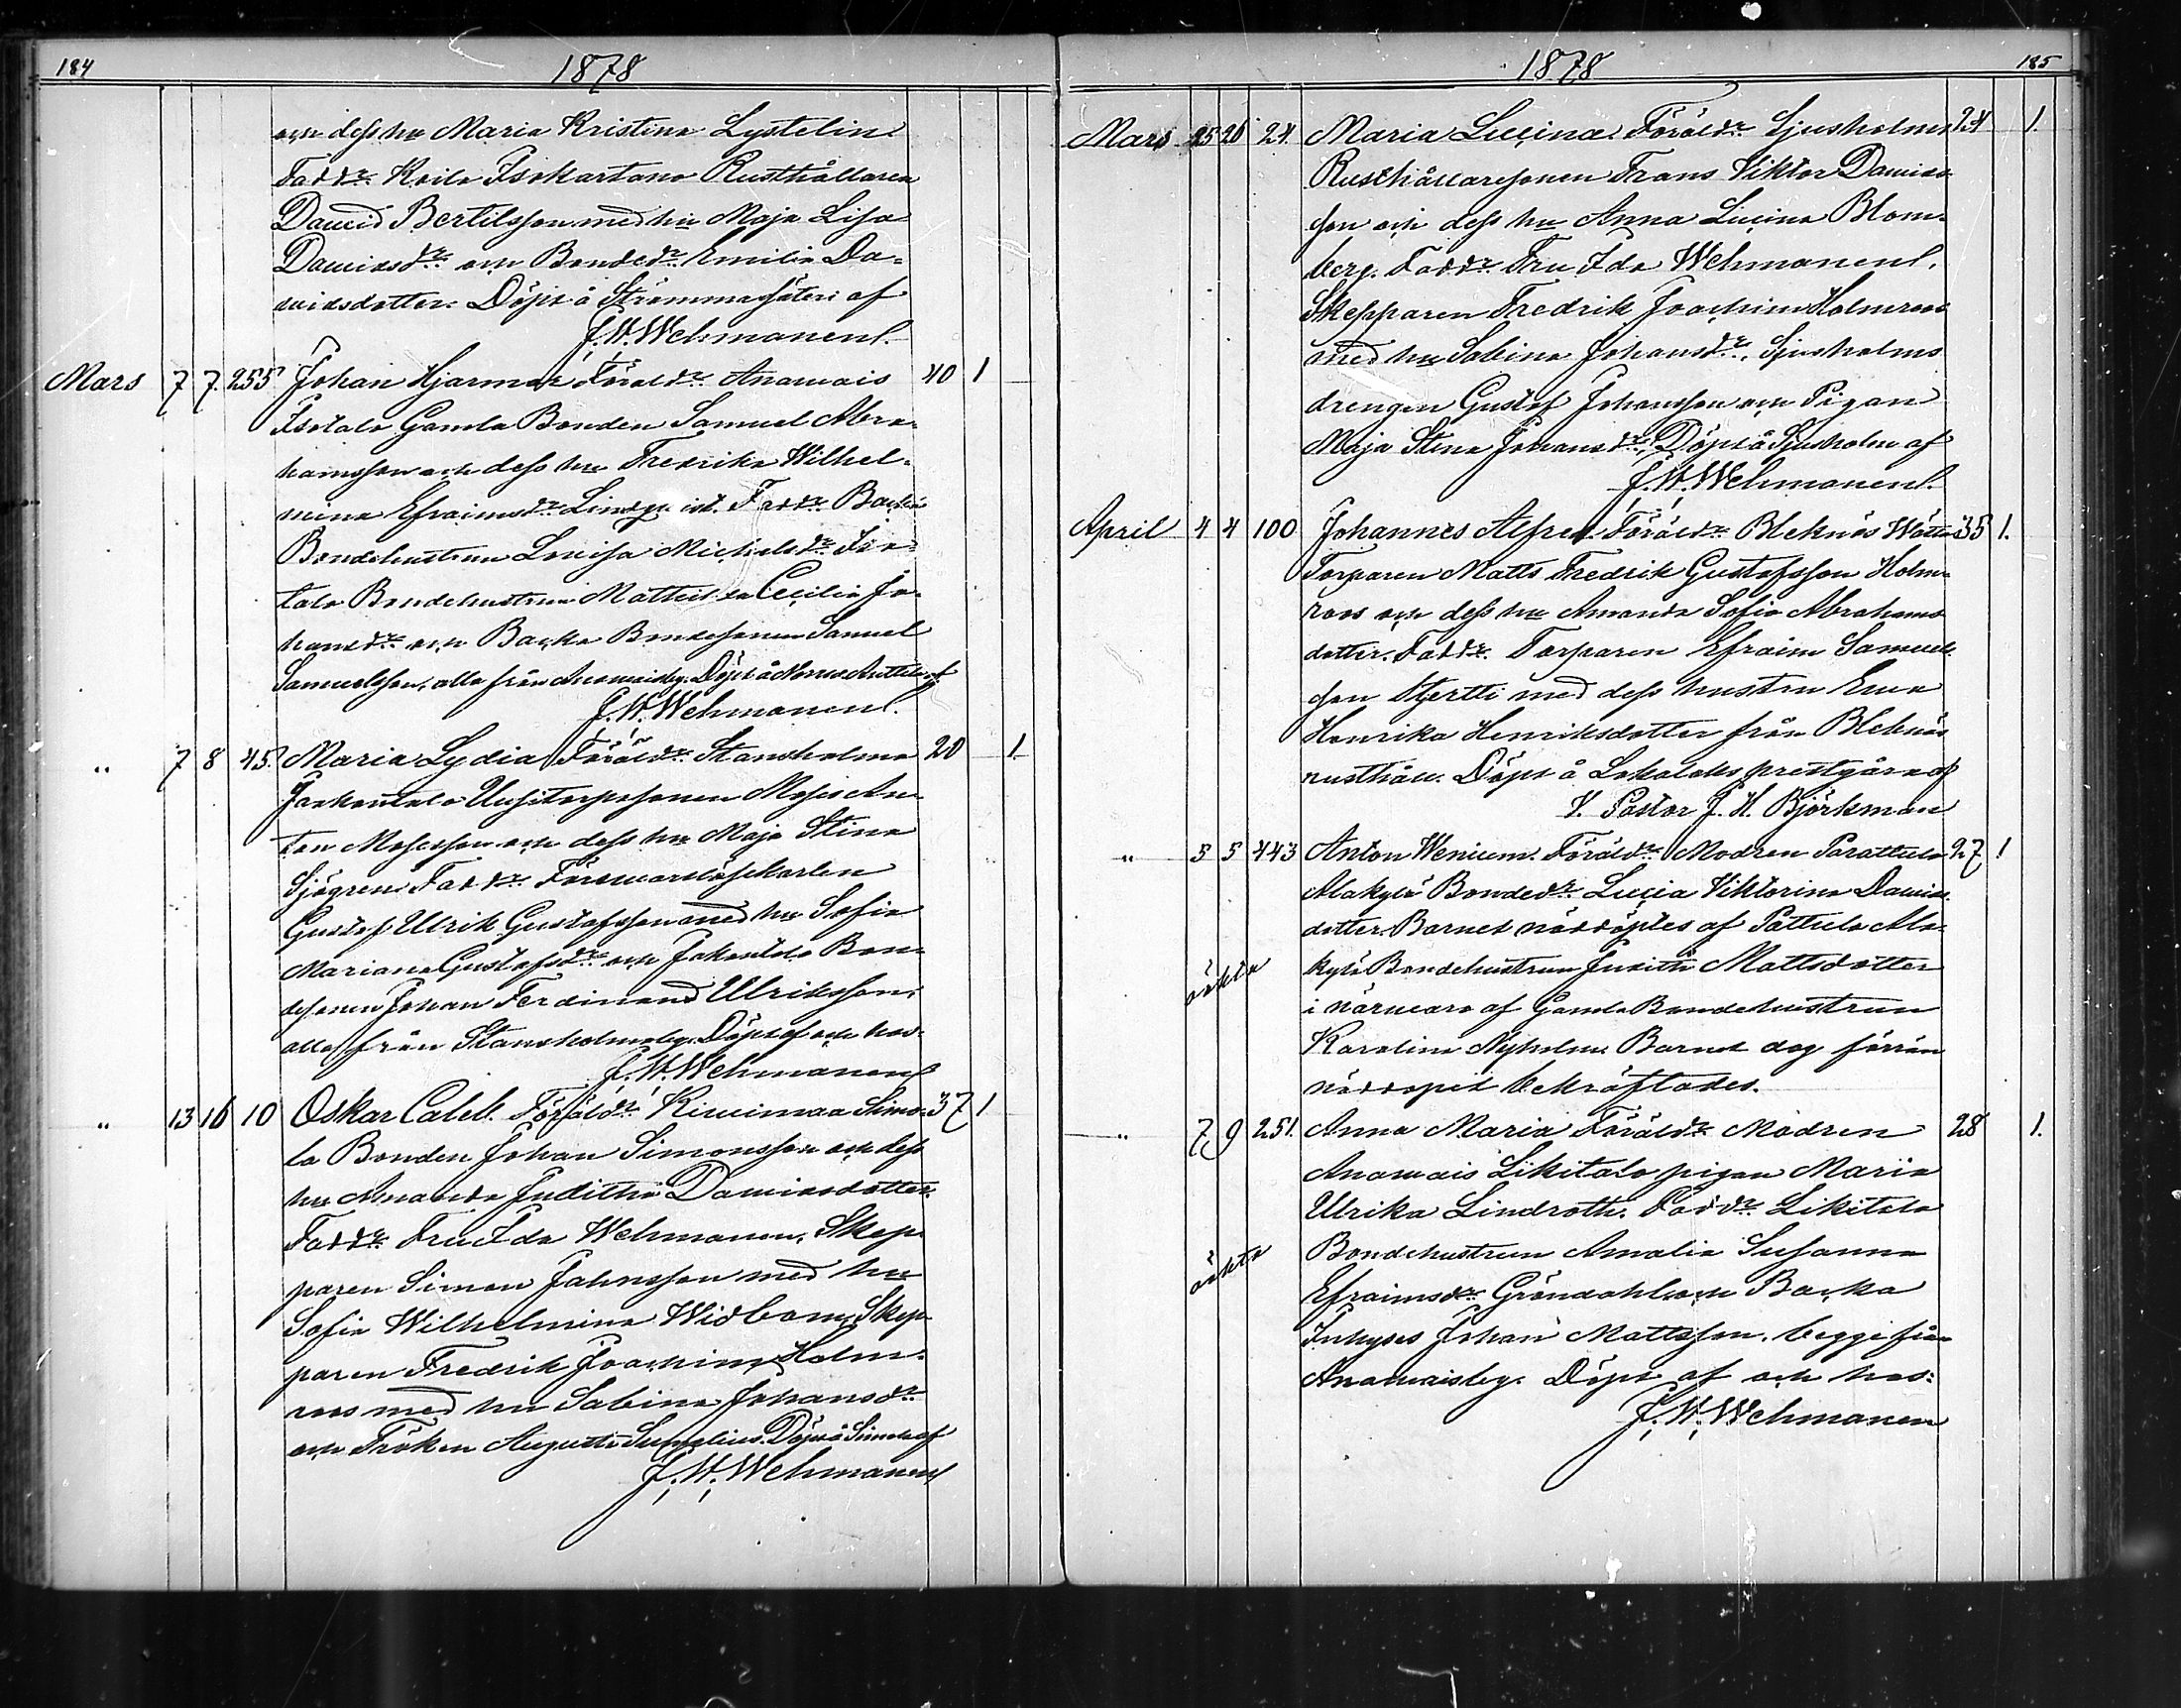 184
1878
och dess hu Maria Kristina Lystelin
Fadd:r Koila Isokartano Rusthållaren
Dawid Bertilsson med hu Maja Lisa
Dawidsd:r och Bonded:r Emilia Da-
widsdotter. Döpt å Strömma säteri af
J. W. Wehmanen
Mars 7 7 255 Johan Hjarmar Föräld:r Anawais 40 1
Isotalo Gamla Bonden Samuel Abra-
hamsson och dess hu Fredrika Wilhel-
mina Efraimsd:r Fadd:r Backa
Bondehustrun Lovisa Michelsd:r Iso-
talo Bondehustrun Cecilia Jo-
hansd:r och Backa Bondesonen Samuel
Samuelsson, alla från Anawaisby. Döpt å af
J. W. Wehmanen
" 7 8 45. Maria Lydia Föräld:r Stansholma 20 1
Mosis An-
ton Mosesson och dess hu Maja Stina
Sjögren. Fadd:r Förswarslöskarlen
Gustaf Ulrik Gustafsson med hu Sofia
Mariana Gustafsd:r och Bon-
desonen Johan Ferdinand Ulriksson,
alla från Stansholmaby. Döpt af och hos
J. W. Wehmanen
" 13 16 10 Oskar Caleb. Föräld:r Kiwimaa Simo- 37 1
la Bonden Johan Simonsson och dess
hu Amanda Juditha Dawidsdotter.
Fadd:r Fru Ida Wehmanen, Skep-
paren Simon Johnsson med hu
Sofia Wilhelmina Widbom, Skep-
paren Fredrik Joachim Holm-
roos med hu Sabina Johansd:r
och Fröken Augusta Sumelius. Döpt å Simola af
J. W. Wehmanen
1878
185
Mars 25 26 24. Maria Lucina. Föräld:r Sjusholms 24 1.
Rusthållaresonen Frans Viktor Dawids-
son och dess hu Anna Lucina Blom-
berg. Fadd:r Fru Ida Wehmanen,
Skepparen Fredrik Joachim Holmroos
med hu Sabina Johansd:r, Sjusholms
drengen Gustaf Johansson och Pigan
Maja Stina Johansd:r, Döpt å Sjusholm af
J. W. Wehmanen
April 4 4 100 Johannes Alfred. Föräld:r Bleknäs 35 1.
Torparen Matts Fredrik Gustafsson Holm-
roos och dess hu Amanda Sofia Abrahams
dotter. Fadd:r Torparen Efraim Samuel-
son Hjertti med dess hustru Ewa
Henrika Henriksdotter från Bleknäs
rusthåll. Döpt å Lokalaks prestgård af
V. Pastor J. H. Björkman
" 5 5 443 Anton Wenium. Föräld:r Modren Parattula 27 1
Alakylä Bonded:r Lucia Viktorina Dawids-
dotter. Barnet nöddöptes af Pattula Ala-
äkta kylä Bondehustrun Judith Mattsdotter
i närwaro af Gamla Bondehustrun
Karolina Nyholm. Barnet dog förrän
nöddopet bekräftades.
" 7 9 251. Anna Maria Föräld:r Modren 28 1.
Anawais Likitalo pigan Maria
Ulrika Lindroth. Fadd:r Likitalo
äkta Bondehustrun Amalia Susanna
Efraimsd:r Gröndahl och Backa
Inhyses Johan Mattsson, begge från
Anawaisby. Döpt af och hos:
J. W. Wehmanen